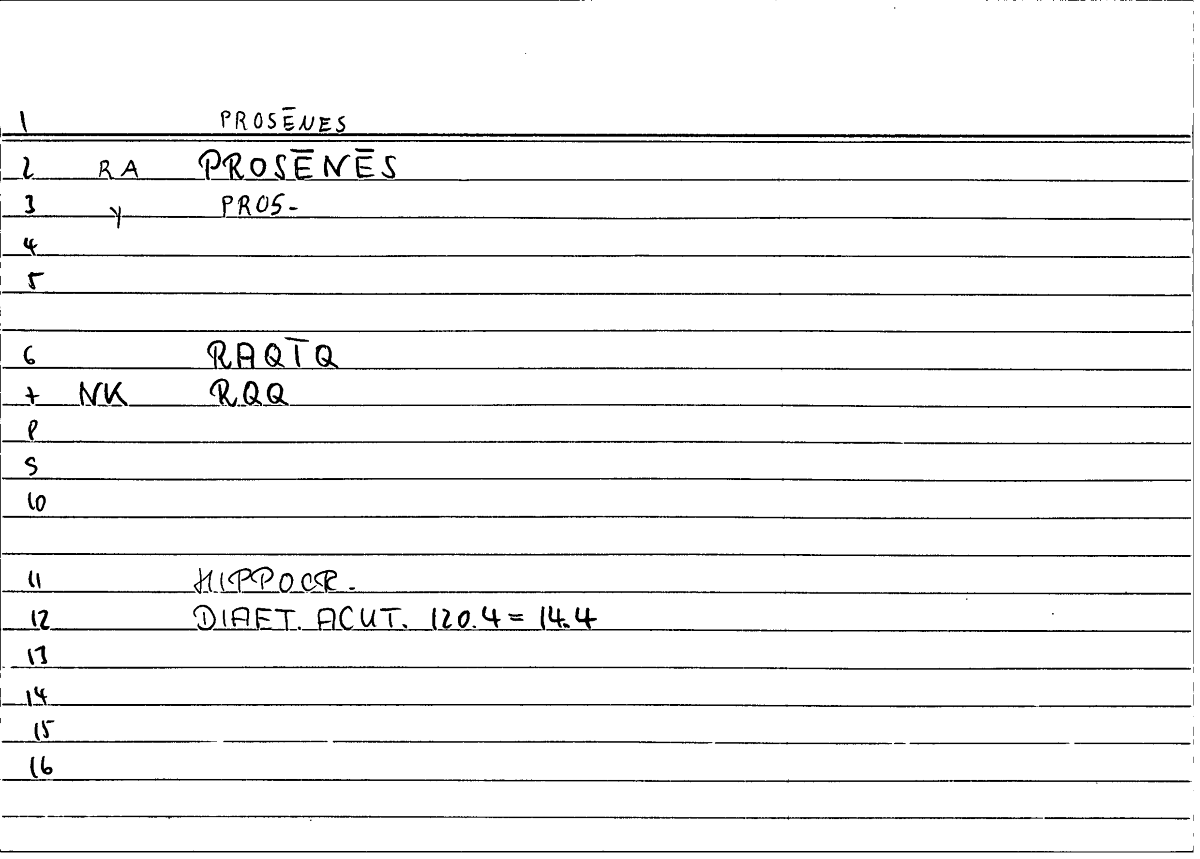 1 PROSĒNES
2 RA PROSĒNĒS
3 Y PROS-
4
5
6 RAQT̄Q
7 NK RQQ
8
9
10
11 HIPPOCR.
12 DIAET. ACUT. 120.4 = 14.4
13
14
15
16